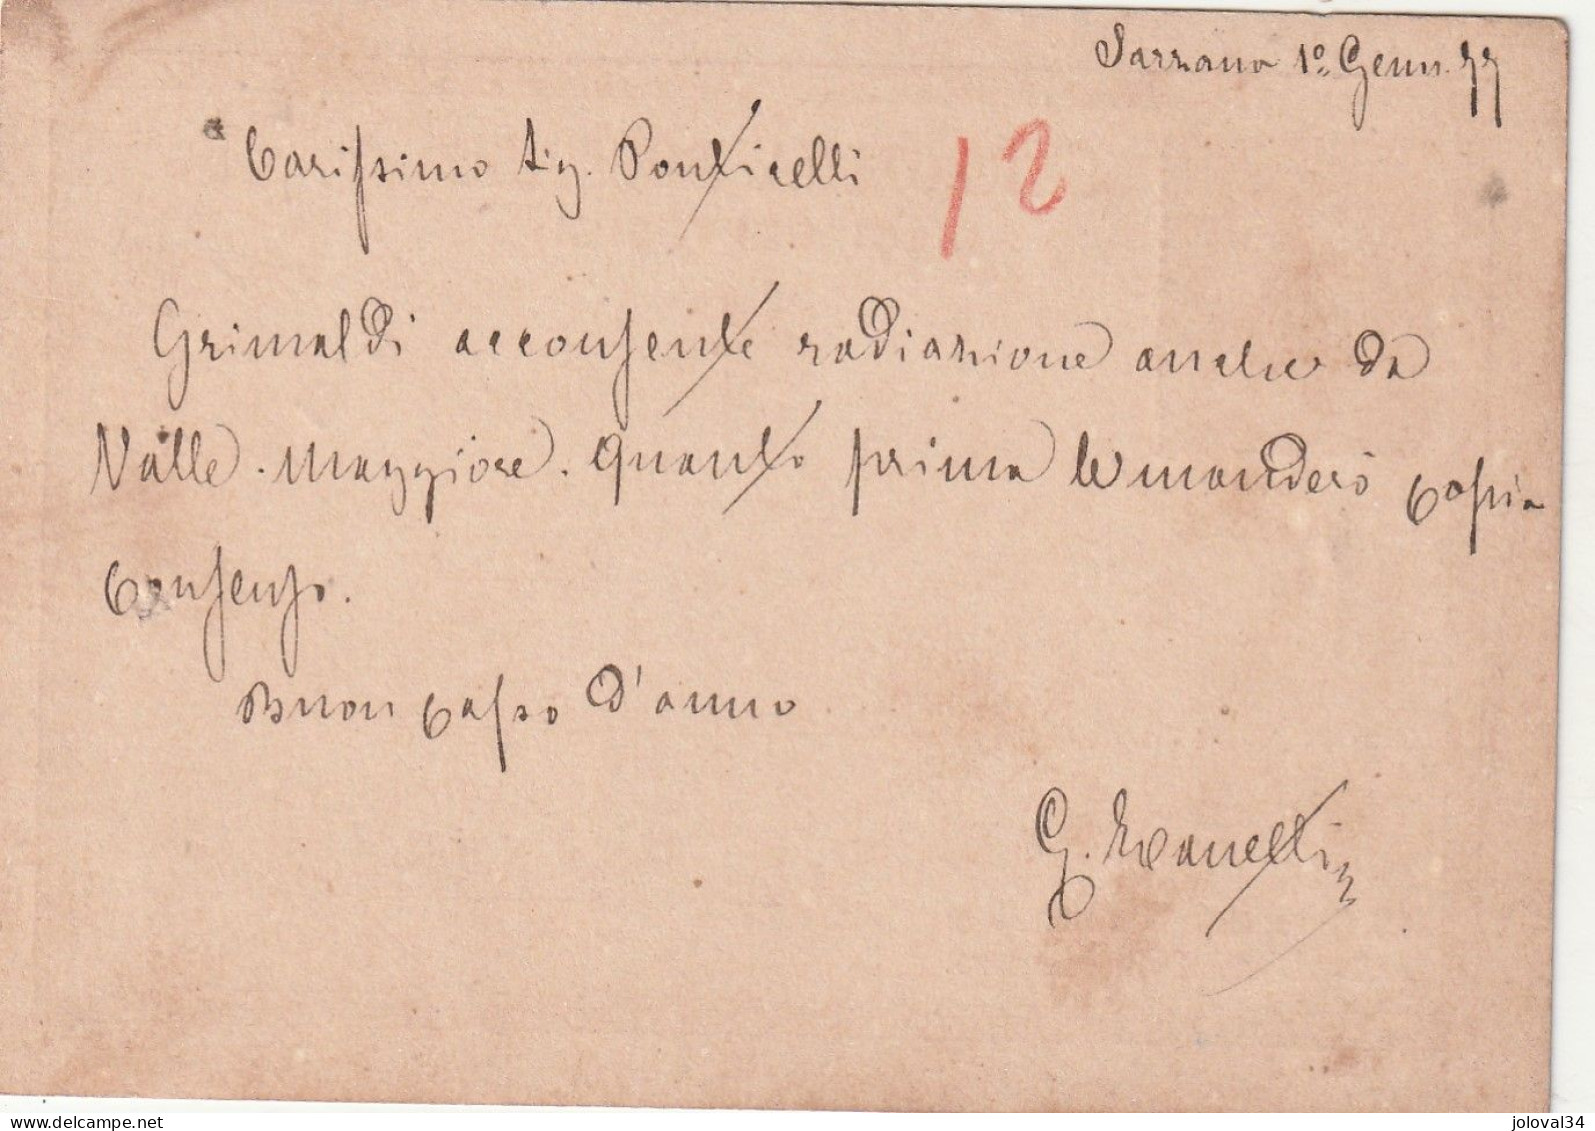 Sarzana 1º Genn. 77
Carissimo Sig. Ponticelli
12
Grimaldi acconsente radiazione anche da
Valle-Maggiore. Quanto prima le manderò copia
Consenso.
Buon capso d'anno
G.
joloval34